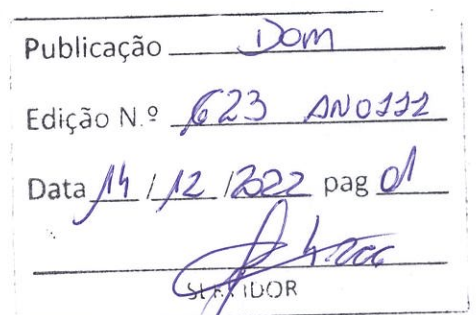 Publicação Dom
Edição N.º 623 ANO III
Data 14 / 12 / 2022 pag 01
SERVIDOR